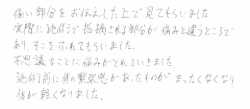 痛い部分をお伝えした上で見てもらいました
実際に施術で指摘される部分が痛みと違うところで
あり、そこをほぐしてもらいました。
不思議なことに痛みがとれていきました
施術前に体の緊張感があったものがまったくなくなり
体が軽くなりました。